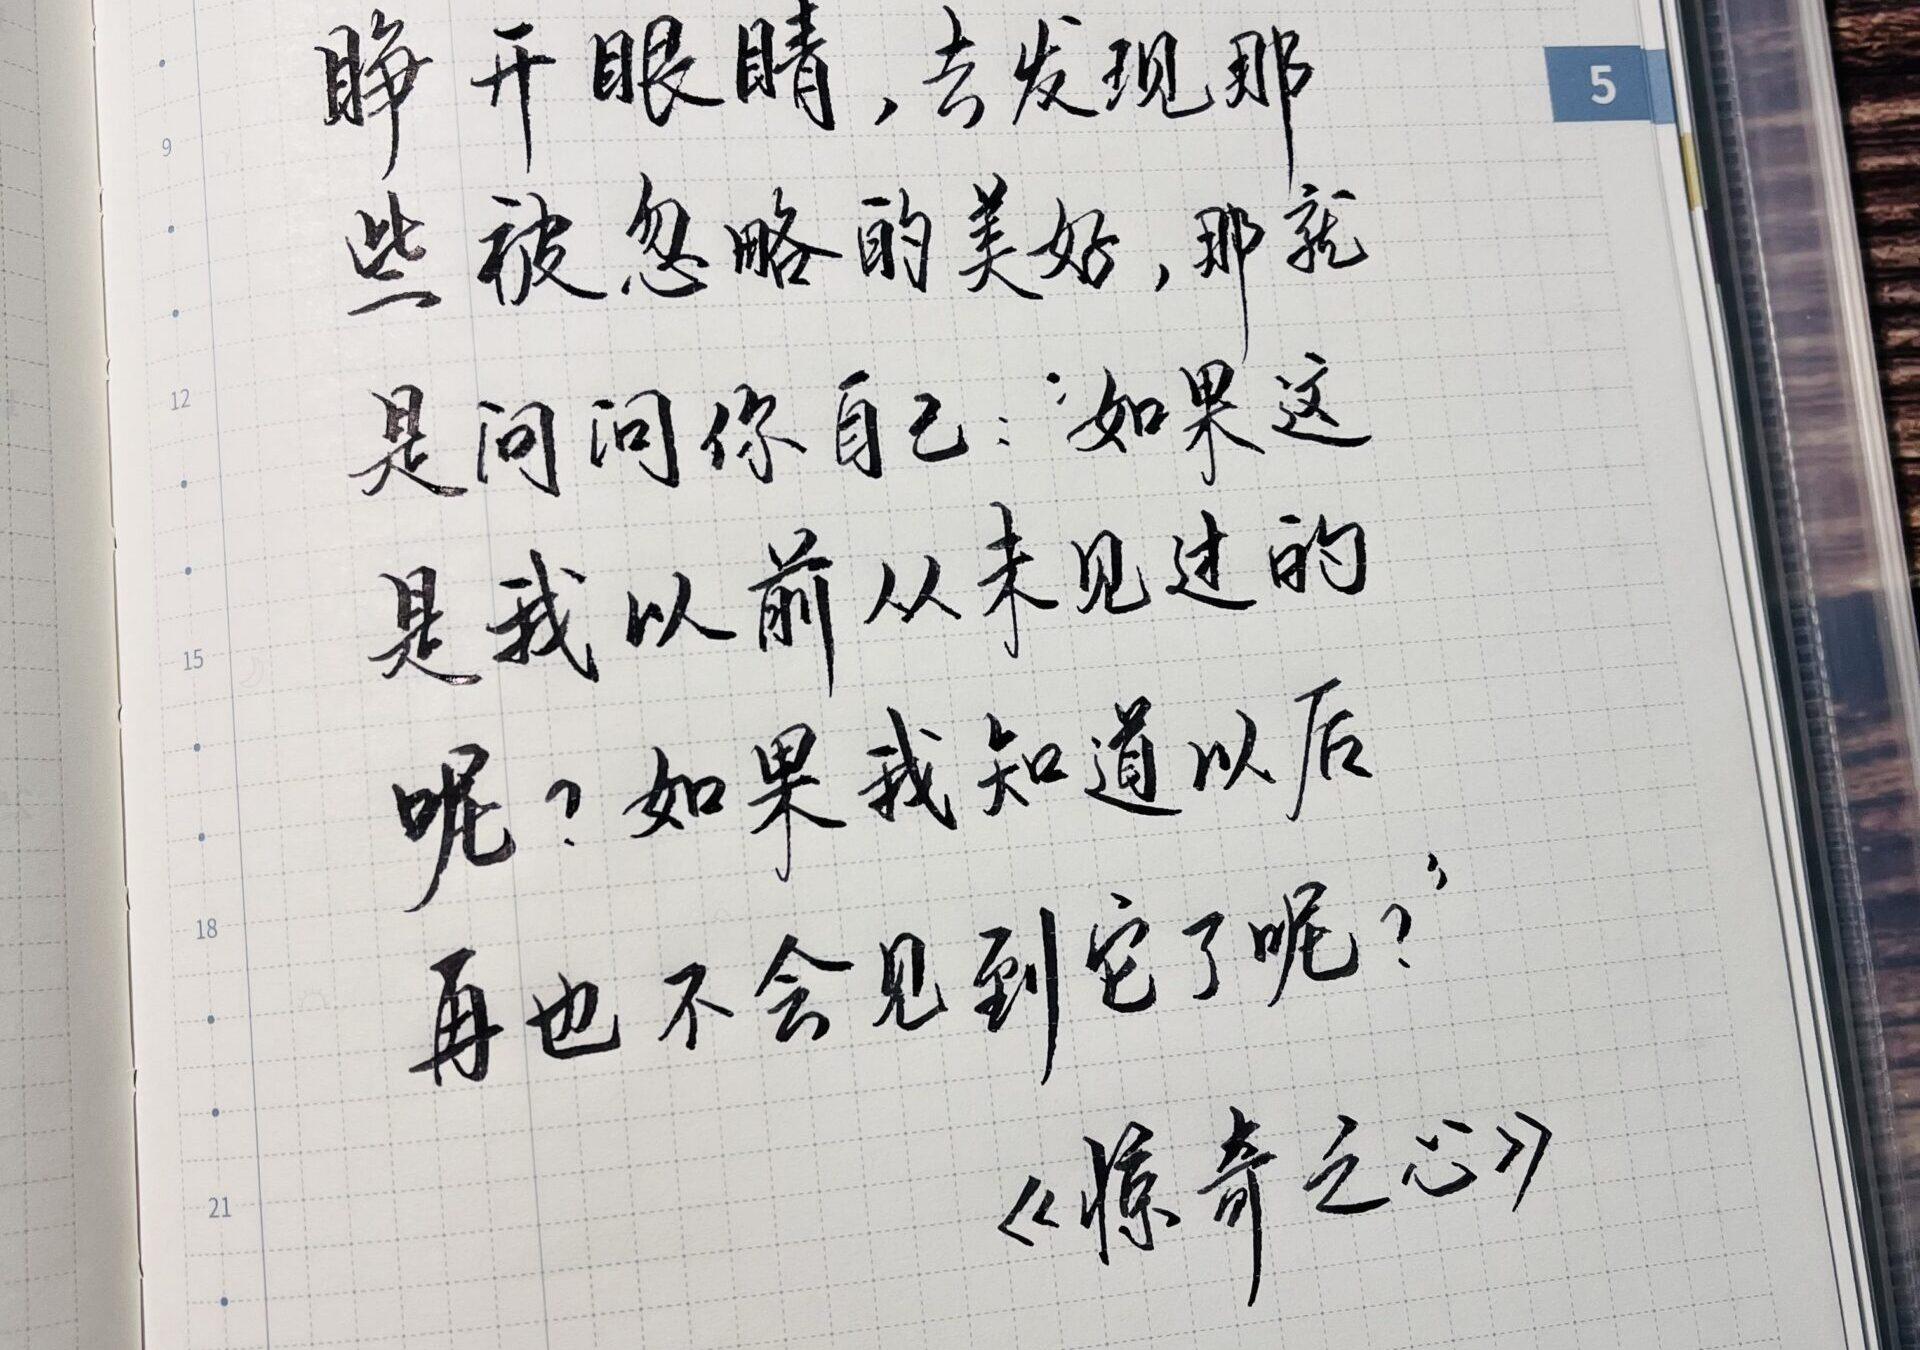 睁开眼睛,去发现那
5
9
些被忽略的美好,那就
12
是问问你自己:“如果这
是我以前从未见过的
15
呢?如果我知道以后
18
再也不会见到它了呢?”
21
《惊奇之心》